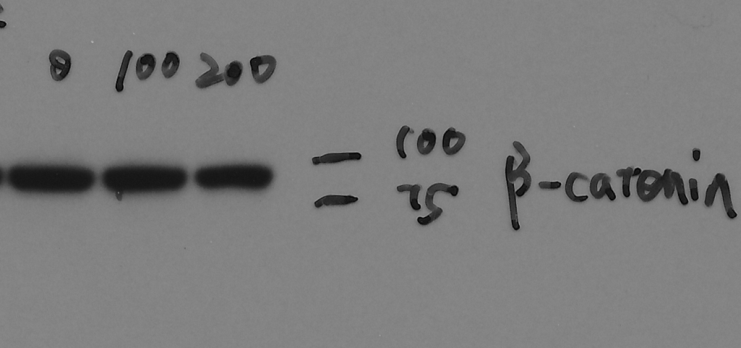 0 100 200
= 100
= 75
β-catenin